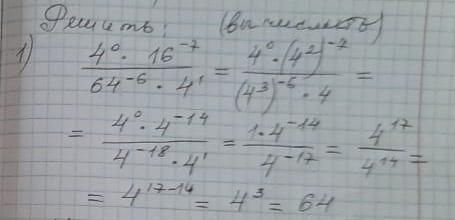 Решить: (вычислить)
1) \frac{4^0 \cdot 16^{-7}}{64^{-6} \cdot 4^1} = \frac{4^0 \cdot (4^2)^{-7}}{(4^3)^{-6} \cdot 4} =
= \frac{4^0 \cdot 4^{-14}}{4^{-18} \cdot 4^1} = \frac{1 \cdot 4^{-14}}{4^{-17}} = \frac{4^{17}}{4^{14}} =
= 4^{17-14} = 4^3 = 64